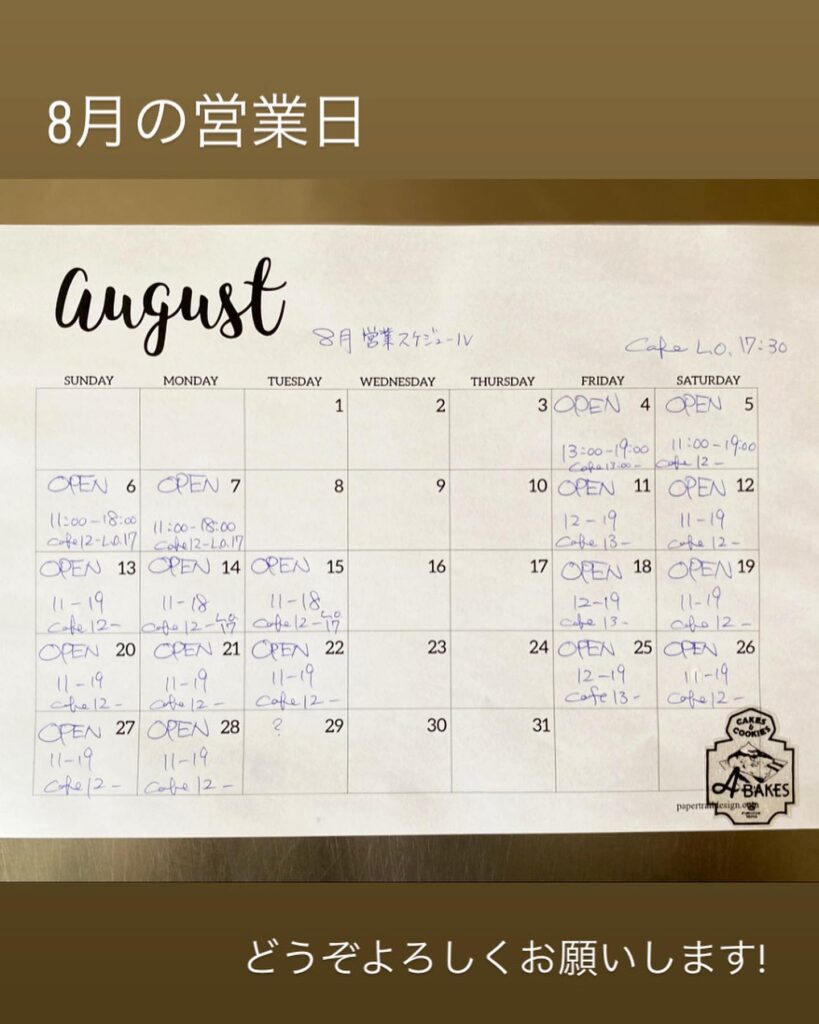 8月の営業日
august
8月 営業スケジュール
Cafe L.O. 17:30
SUNDAY MONDAY TUESDAY WEDNESDAY THURSDAY FRIDAY SATURDAY
1 2 3 OPEN 4 OPEN 5
13:00-19:00 11:00-19:00
Cafe 13:00- Cafe 12-
OPEN 6 OPEN 7 8 9 10 OPEN 11 OPEN 12
11:00-18:00 11:00-18:00 12-19 11-19
Cafe 12-L.O.17 Cafe 12-L.O.17 Cafe 13- Cafe 12-
OPEN 13 OPEN 14 OPEN 15 16 17 OPEN 18 OPEN 19
11-19 11-18 11-18 12-19 11-19
Cafe 12- Cafe 12-L.O.17 Cafe 12-L.O.17 Cafe 13- Cafe 12-
OPEN 20 OPEN 21 OPEN 22 23 24 OPEN 25 OPEN 26
11-19 11-19 11-19 12-19 11-19
Cafe 12- Cafe 12- Cafe 12- Cafe 13- Cafe 12-
OPEN 27 OPEN 28 ? 29 30 31
11-19 11-19
Cafe 12- Cafe 12-
CAKES
&
COOKIES
A BAKES
papertraildesign.com
どうぞよろしくお願いします!